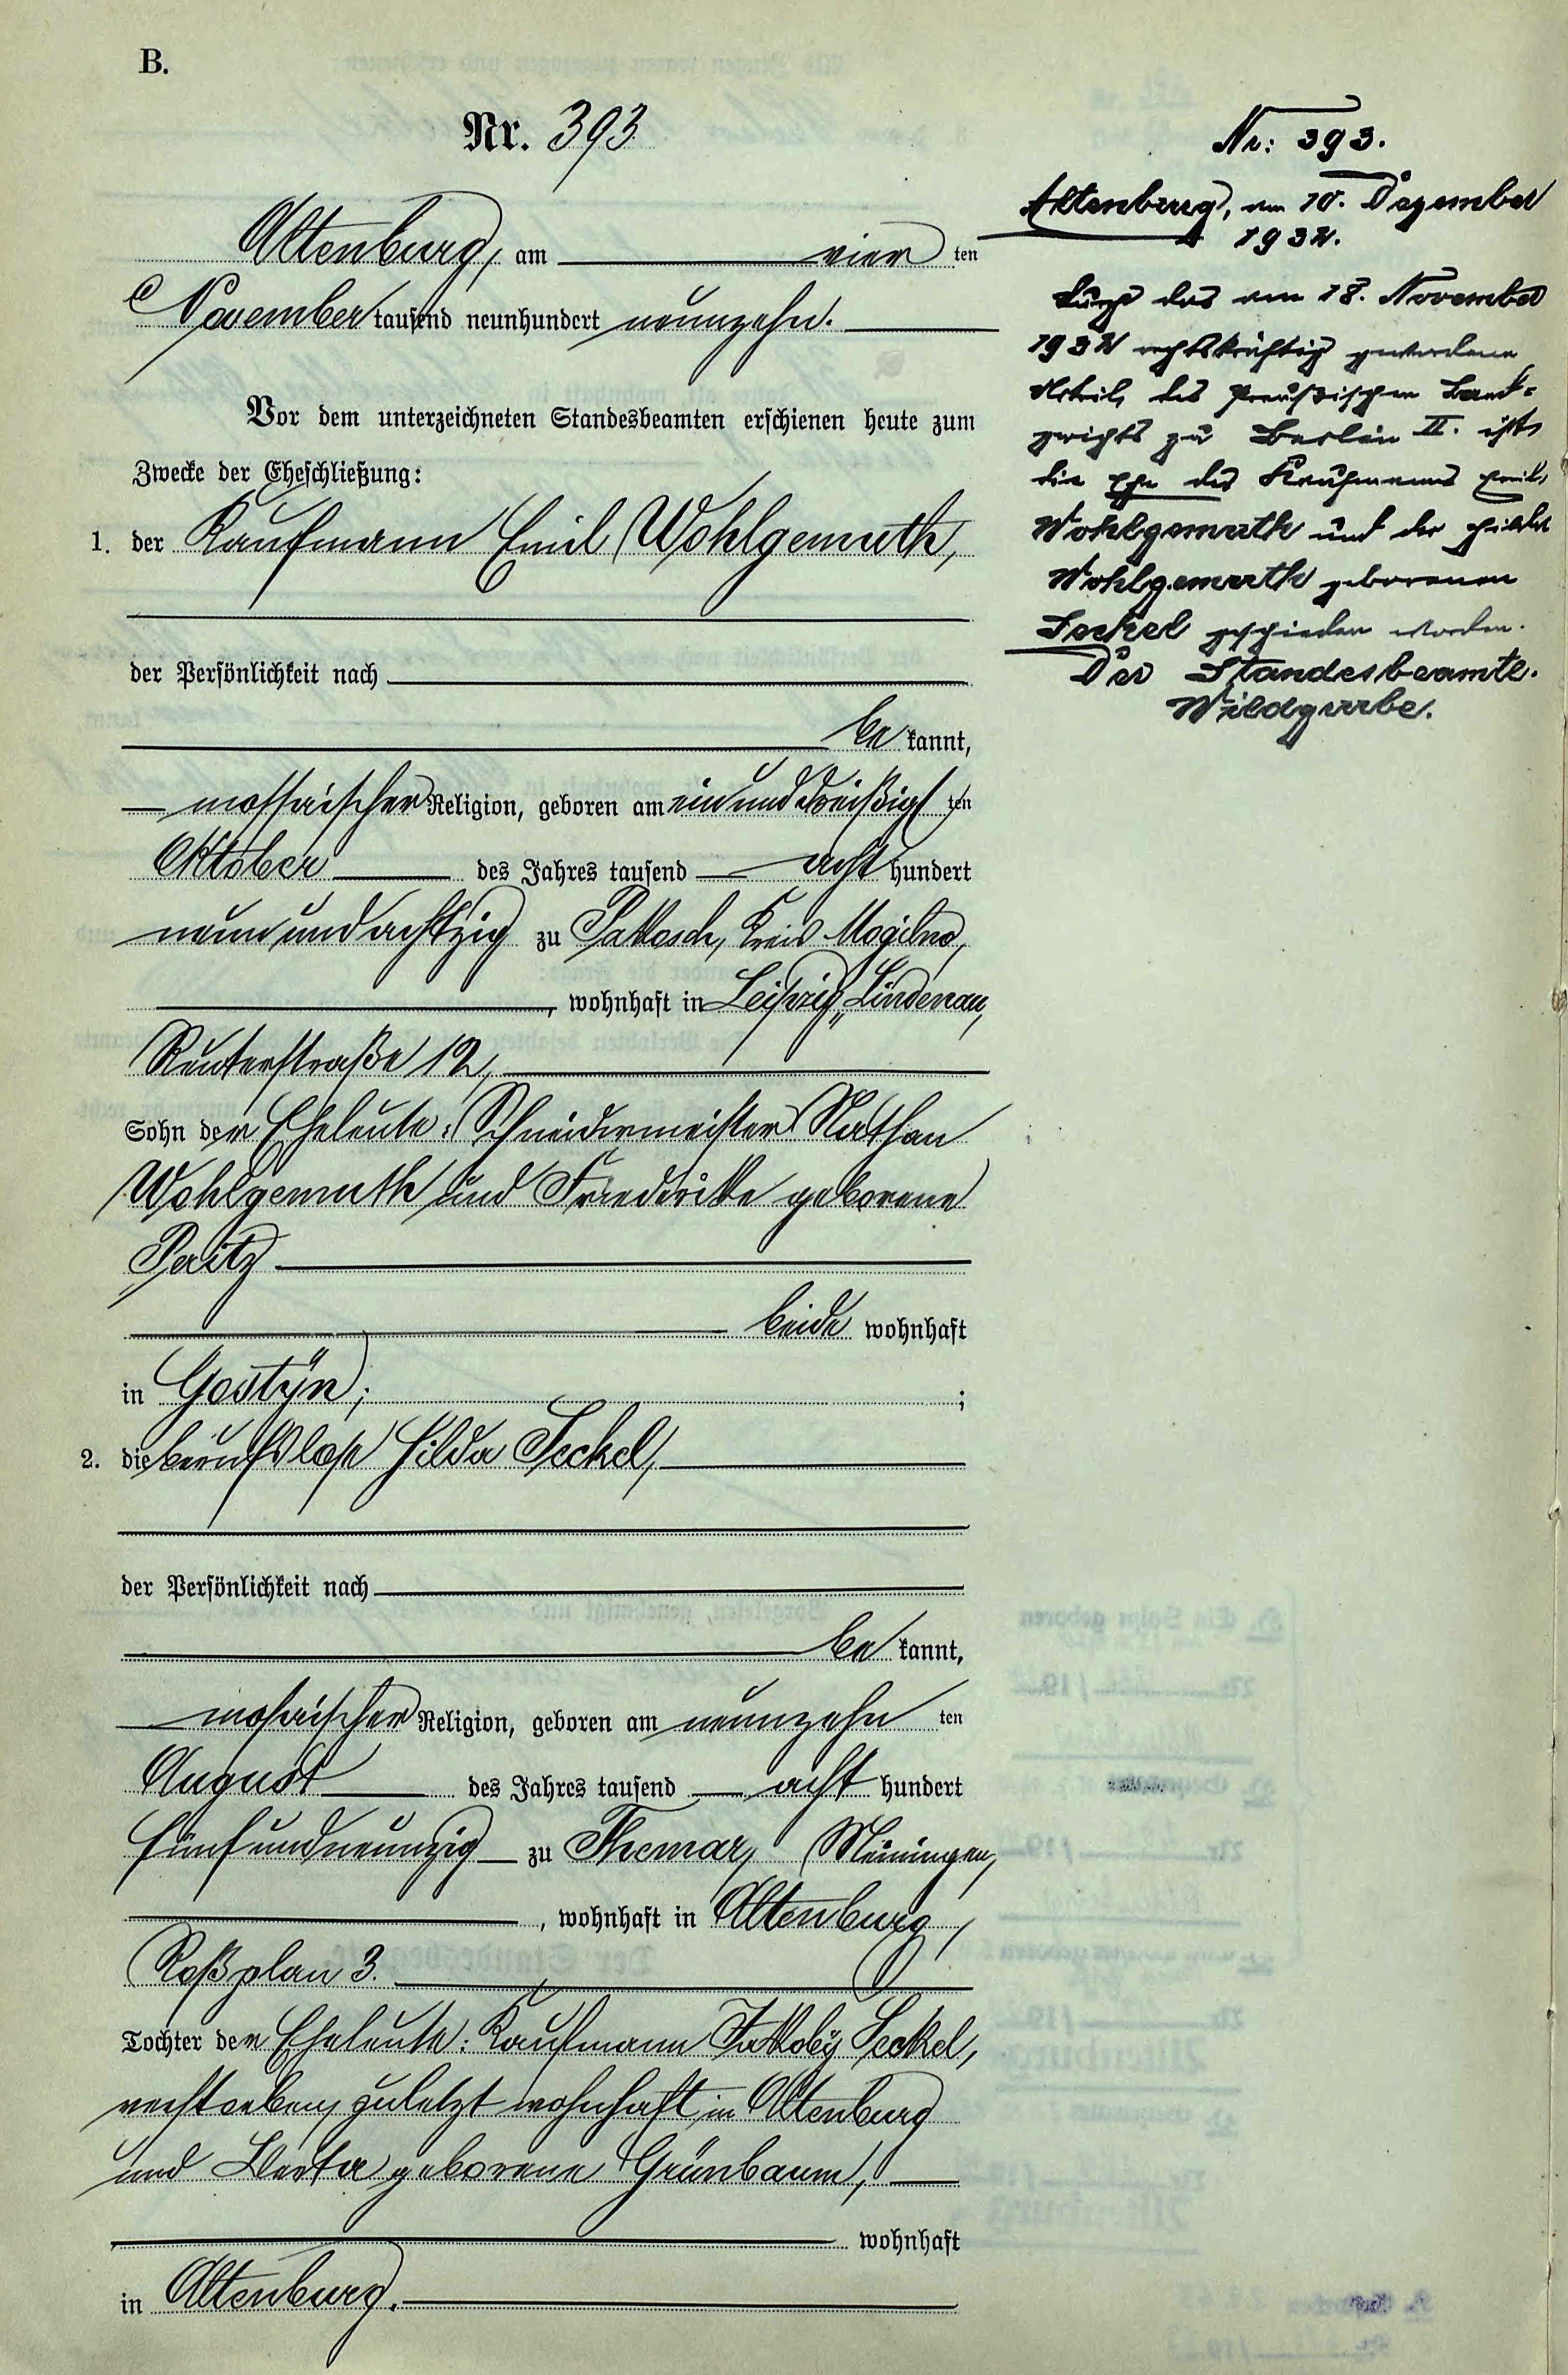 B.
Nr. 393
Altenburg, am vier ten
November tausend neunhundert neunzehn.
Vor dem unterzeichneten Standesbeamten erschienen heute zum
Zwecke der Eheschließung:
1. der Kaufmann Emil Wohlgemuth,
der Persönlichkeit nach
be kannt,
mosaischer Religion, geboren am einunddreißigs ten
Oktober des Jahres tausend acht hundert
neunundachtzig zu Pakosch, Kreis Mogilno,
, wohnhaft in Leipzig-Lindenau,
Reuterstraße 12,
Sohn der Eheleute: Schneidermeister Nathan
Wohlgemuth und Friederike geborene
beide wohnhaft
in Gostÿn; ;
2. die berufslose Hilda Seckel,
der Persönlichkeit nach
be kannt,
mosaischer Religion, geboren am neunzehn ten
August des Jahres tausend acht hundert
fünfundneunzig zu Themar, Meiningen,
, wohnhaft in Altenburg,
Roßplan 3.
Tochter der Eheleute: Kaufmann Jakoby Seckel,
verstorben, zuletzt wohnhaft in Altenburg
und Berta geborene Grünbaum,
wohnhaft
in Altenburg.
Nr: 393.
Altenburg, am 10. Dezember
1932.
Durch das am 18. November
1932 rechtskräftig gewordene
Urteil des Preußischen Land-
gerichts zu Berlin II. ist
die Ehe des Kaufmanns Emil
Wohlgemuth und der Hilda
Wohlgemuth geborenen
Seckel geschieden worden.
Der Standesbeamte.
Wildgrube.